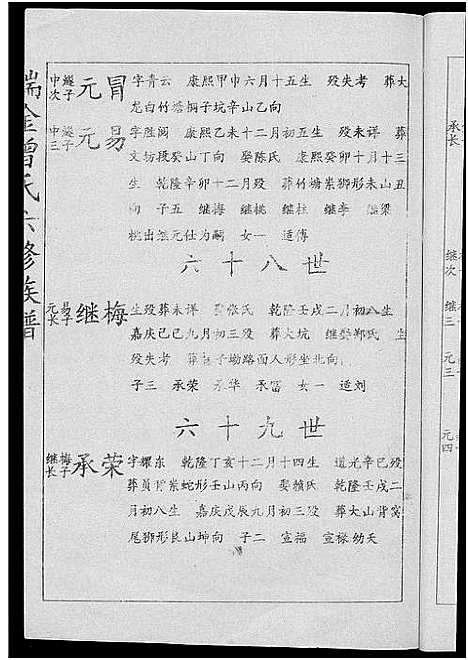 瑞金曾氏六修族谱
中次 继子 元冒 字青云 康熙甲申六月十五生 殁失考 葬大
龙白竹塘桐子坑辛山乙向
中三 继子 元易 字胜阅 康熙乙未十二月初五生 殁未详 葬
文坊段癸山丁向 娶陈氏 康熙癸卯十月十三
生 乾隆辛卯十二月殁 葬竹塘崇狮形未山丑
向 子五 继梅 继桃 继柱 继李 继梁
桃出继元仕为嗣 女一 适傅
六十八世
元长 易子 继梅 生殁葬未详 娶张氏 乾隆壬戌二月初八生
嘉庆己巳九月初三殁 葬大坑 继娶郑氏 生
殁失考 葬 子坳路西人形坐北向
子三 承荣 承华 承富 女一 适刘
六十九世
继长 梅子 承荣 字耀东 乾隆丁亥十二月十四生 道光辛巳殁
葬员背崇蛇形壬山丙向 娶赖氏 乾隆壬戌二
月初八生 嘉庆戊辰九月初三殁 葬大山背窝
尾狮形艮山坤向 子二 宣福 宣禄幼夭
承长
继次
继三
元三
元四